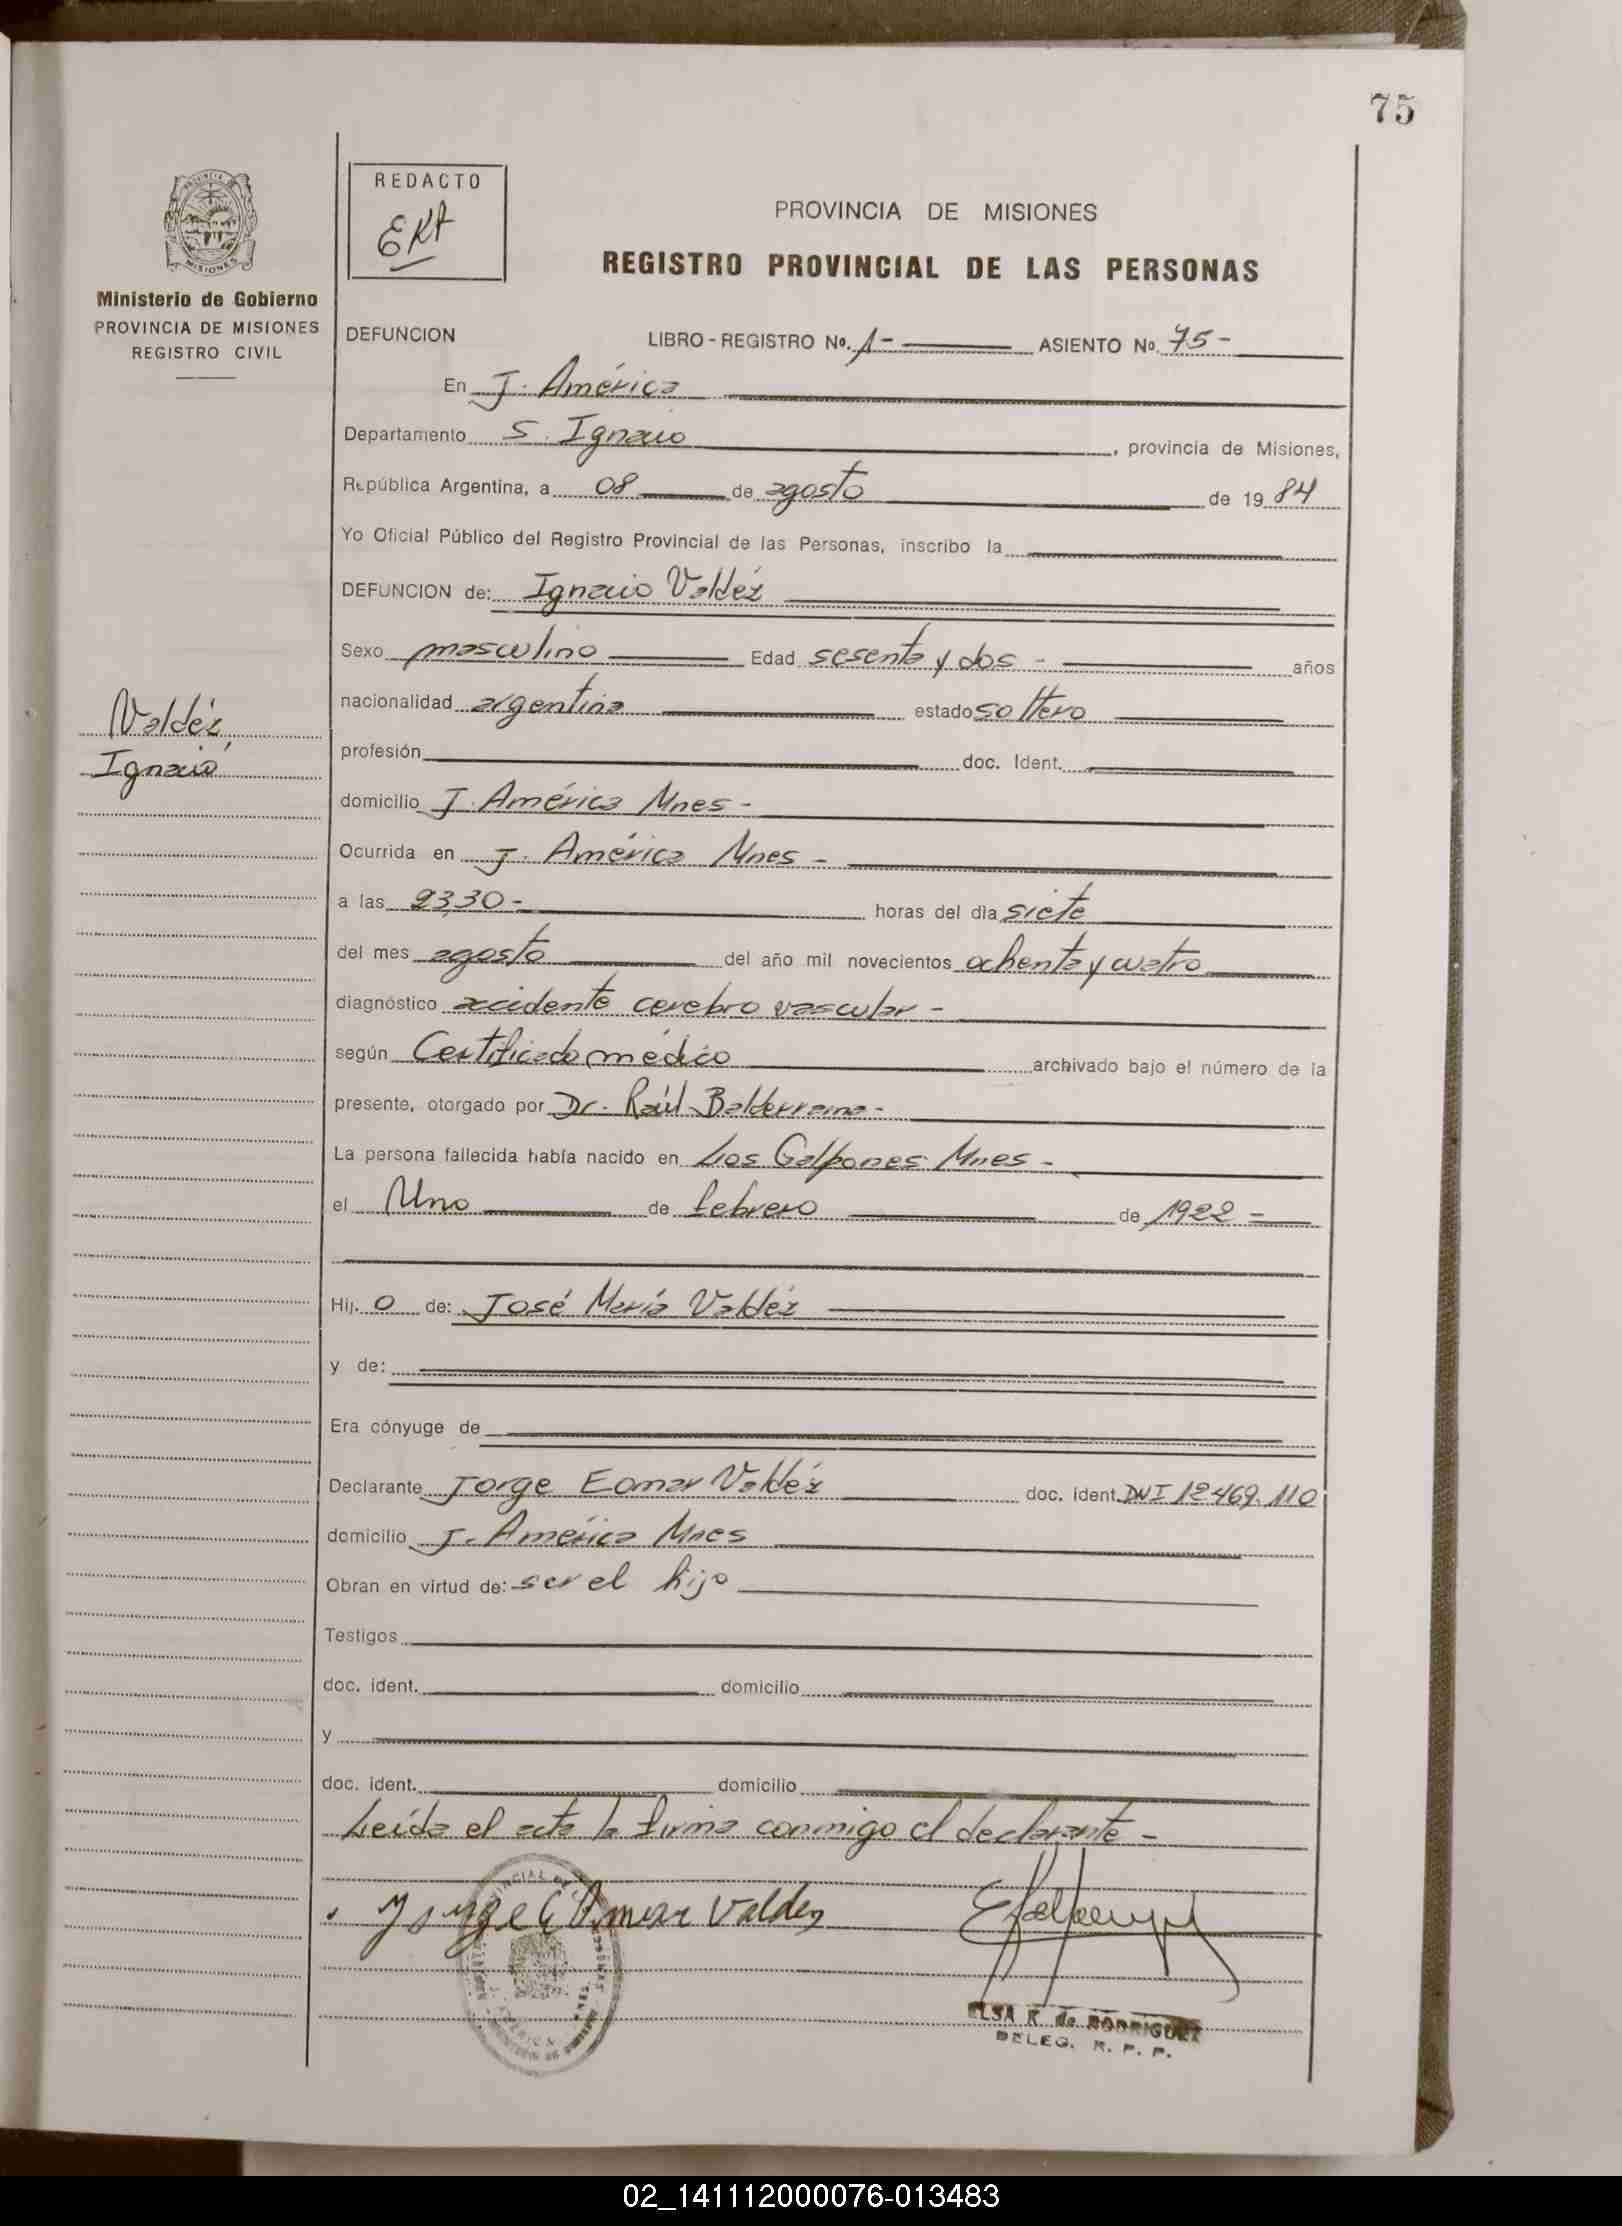 75
PROVINCIA DE MISIONES
Ministerio de Gobierno
PROVINCIA DE MISIONES
REGISTRO CIVIL
REDACTO
EKA
PROVINCIA DE MISIONES
REGISTRO PROVINCIAL DE LAS PERSONAS
DEFUNCION LIBRO - REGISTRO Nº. 1- ASIENTO Nº. 75-
En J. América
Departamento S. Ignacio, provincia de Misiones,
República Argentina, a 08 de agosto de 1984
Yo Oficial Público del Registro Provincial de las Personas, inscribo la
DEFUNCION de: Ignacio Valdéz
Sexo masculino Edad sesenta y dos - años
nacionalidad argentina estado soltero
Valdéz,
Ignacio
profesión doc. Ident.
domicilio J. América Mnes -
Ocurrida en J. América Mnes -
a las 23,30 - horas del día siete
del mes agosto del año mil novecientos ochenta y cuatro
diagnóstico accidente cerebro vascular -
según Certificado médico archivado bajo el número de la
presente, otorgado por Dr. Raúl Balderrama -
La persona fallecida había nacido en Los Galpones Mnes -
el Uno de febrero de 1922 -
Hij. o de: José María Valdéz
y de:
Era cónyuge de
Declarante Jorge Eomar Valdéz doc. ident. DNI 12.469.110
domicilio J. América Mnes
Obran en virtud de: ser el hijo
Testigos
doc. ident. domicilio
y
doc. ident. domicilio
Leída el acta la firma conmigo el declarante -
Jorge Eomar Valdez
ELSA K. de RODRIGUEZ
DELEG. R. P. P.
02_141112000076-013483